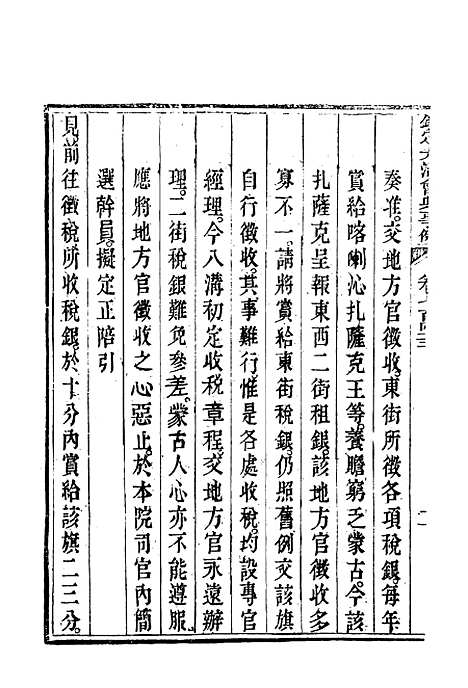 欽定大清會典事例 卷七百四三 二
奏准交地方官徵收東街所徵各項稅銀每年
賞給喀喇沁扎薩克王等養贍窮乏蒙古今該
扎薩克呈報東西二街租銀該地方官徵收多
寡不一請將賞給東街稅銀仍照舊例交該旗
自行徵收其事難行惟是各處收稅均設專官
經理今八溝初定收稅章程交地方官永遠辦
理二街稅銀難免參差蒙古人心亦不能遵服
應將地方官徵收之心惡止於本院司官內簡
選幹員擬定正陪引
見前往徵稅所收稅銀於十分內賞給該旗二三分